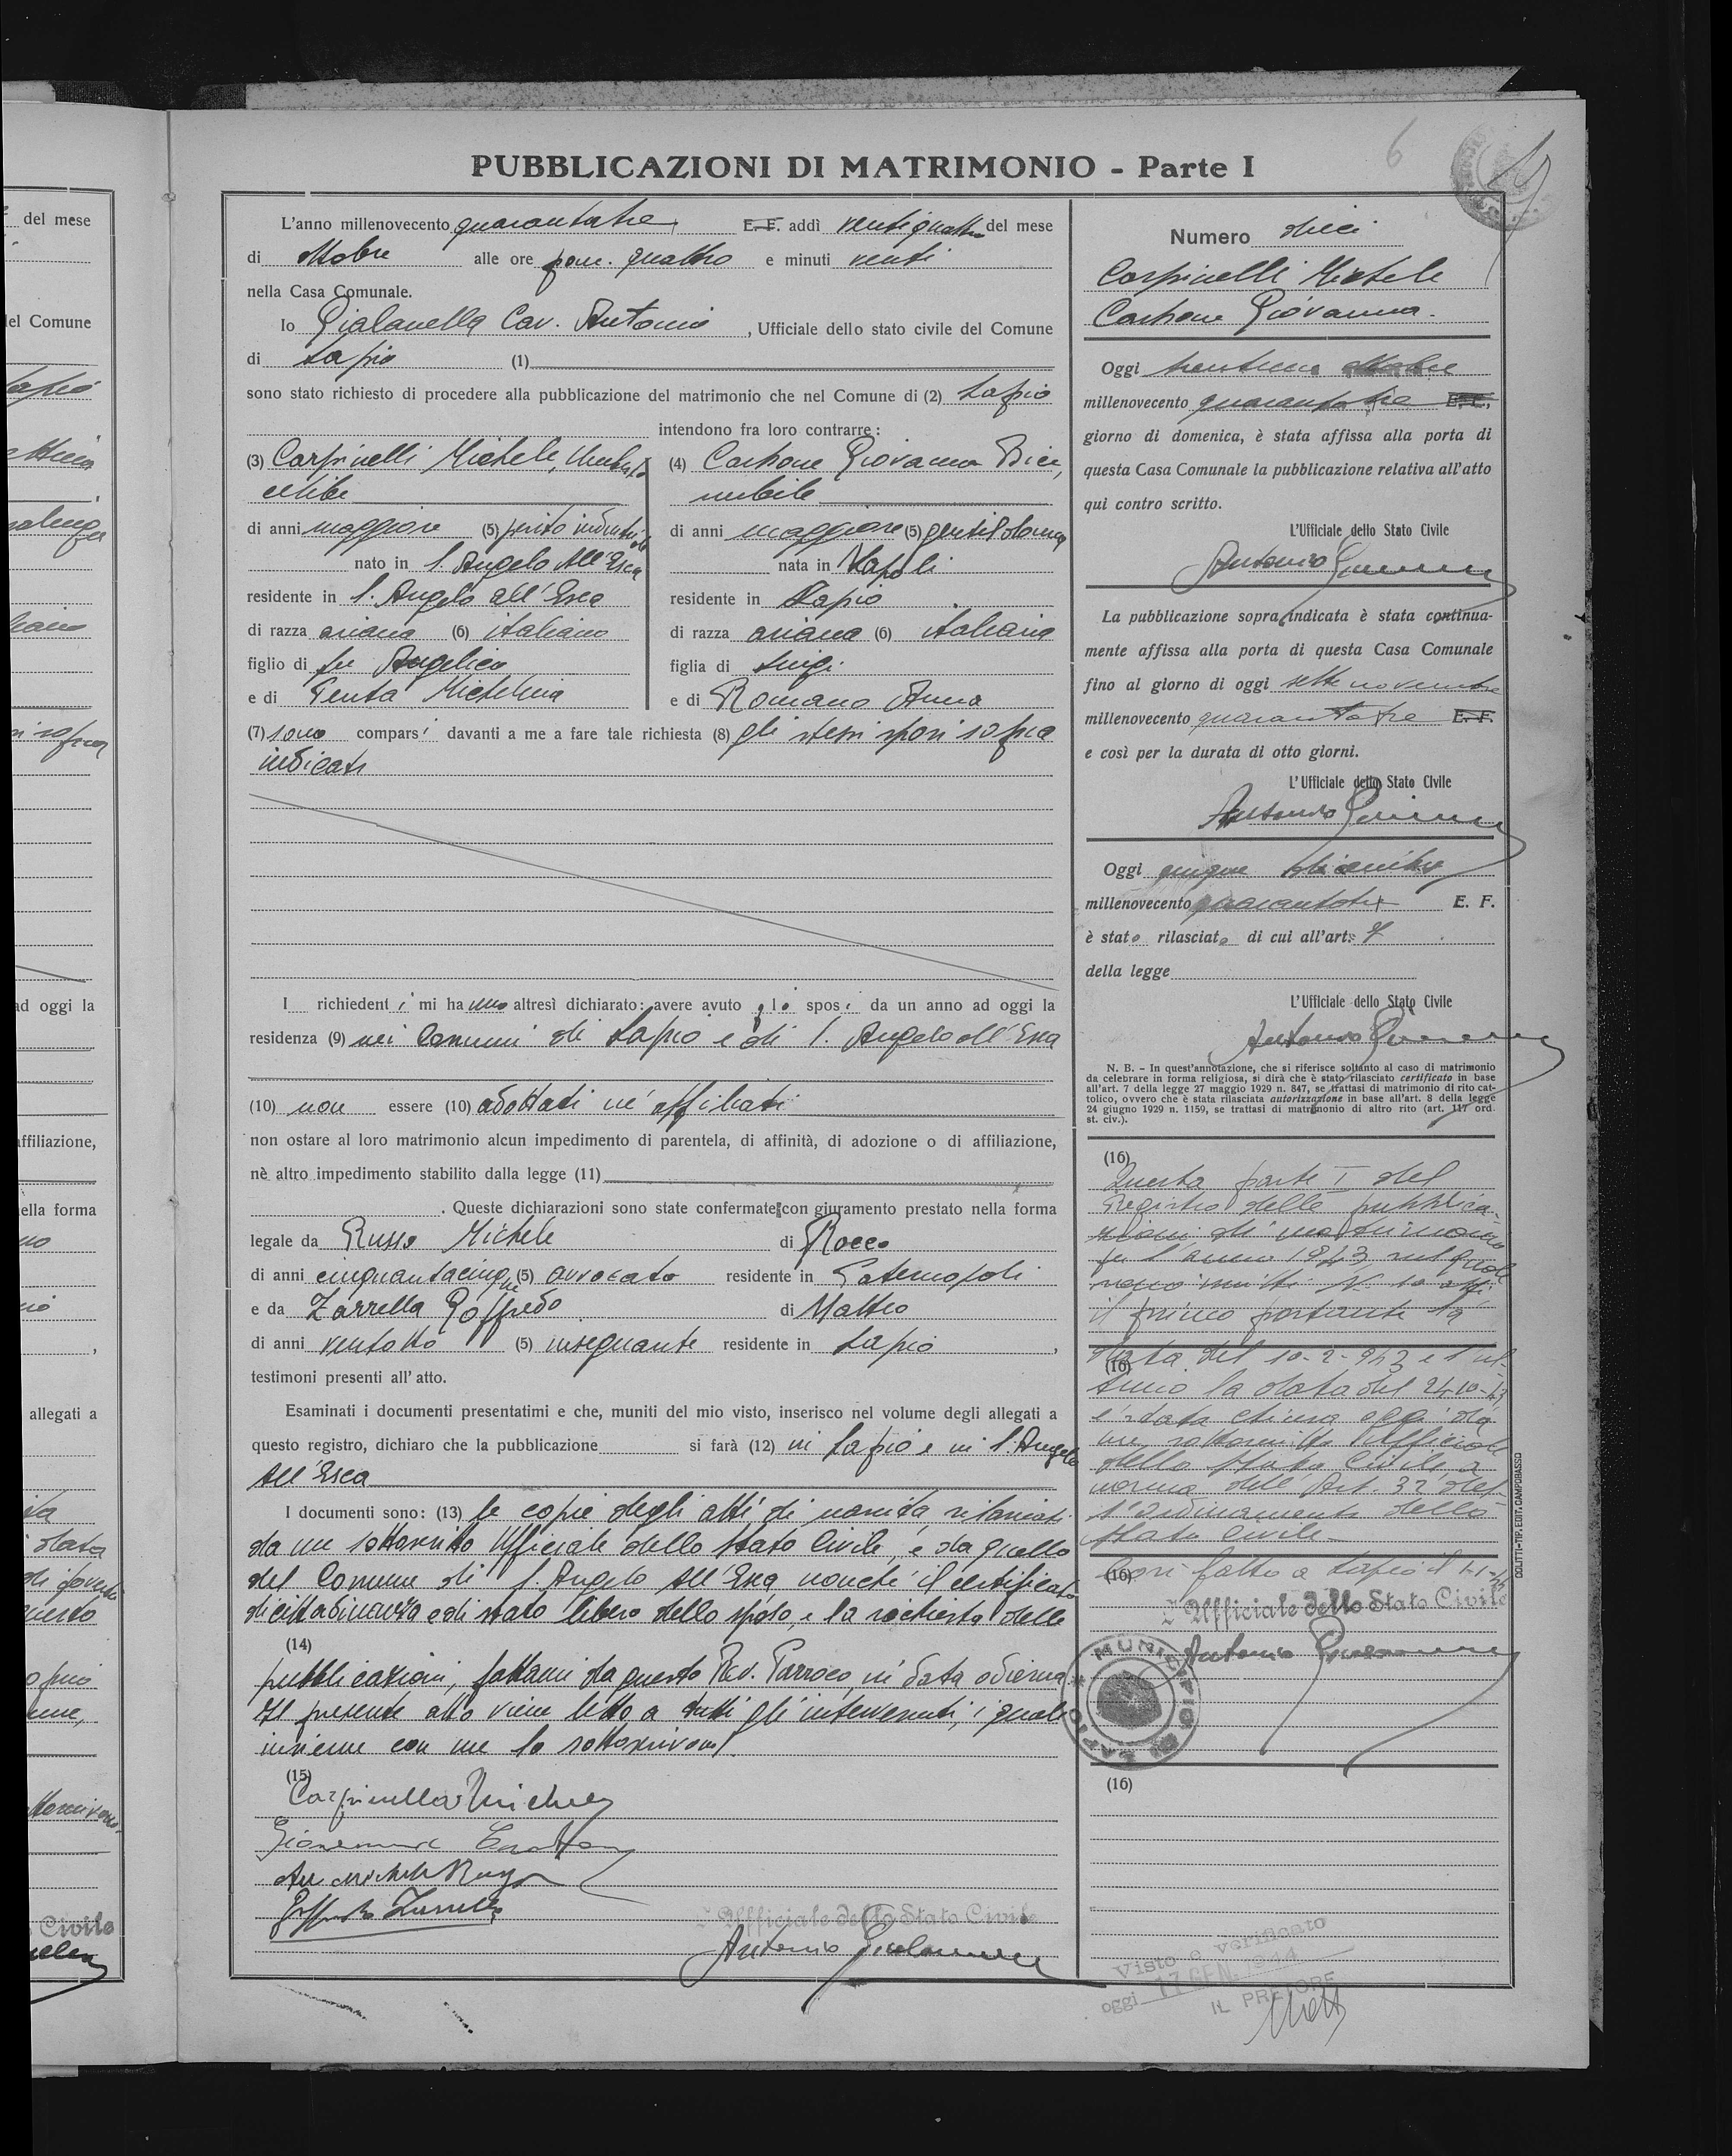 PUBBLICAZIONI DI MATRIMONIO - Parte I
6
L'anno millenovecento quarantatre E. F. addì ventiquattro del mese
di ottobre alle ore pom. quattro e minuti venti
nella Casa Comunale.
Io Gialanella Cav. Antonio, Ufficiale dello stato civile del Comune
di Lapio (1)
sono stato richiesto di procedere alla pubblicazione del matrimonio che nel Comune di (2) Lapio
intendono fra loro contrarre:
(3) Carpinelli Michele, Umberto
celibe
di anni maggiore (5) perito industriale
nato in S. Angelo All'Esca
residente in S. Angelo all'Esca
di razza ariana (6) italiano
figlio di fu Angelico
e di Penta Michelina
(4) Carbone Giovanna Bice,
nubile
di anni maggiore (5) gentildonna
nata in Napoli
residente in Lapio
di razza ariana (6) italiana
figlia di Luigi
e di Romano Anna
(7) sono comparsi davanti a me a fare tale richiesta (8) gli stessi sposi sopra
indicati
I richiedenti mi hanno altresì dichiarato: avere avuto gli sposi da un anno ad oggi la
residenza (9) nei Comuni di Lapio e di S. Angelo all'Esca
(10) non essere (10) adottati nè affiliati
non ostare al loro matrimonio alcun impedimento di parentela, di affinità, di adozione o di affiliazione,
nè altro impedimento stabilito dalla legge (11)
. Queste dichiarazioni sono state confermate con giuramento prestato nella forma
legale da Russo Michele di Rocco
di anni cinquantacinque (5) avvocato residente in Paternopoli
e da Zarrella Goffredo di Matteo
di anni ventotto (5) insegnante residente in Lapio,
testimoni presenti all'atto.
Esaminati i documenti presentatimi e che, muniti del mio visto, inserisco nel volume degli allegati a
questo registro, dichiaro che la pubblicazione si farà (12) in Lapio e in S. Angelo
All'Esca
I documenti sono: (13) le copie degli atti di nascita, rilasciati
da me sottoscritto Ufficiale dello Stato Civile, e da quello
del Comune di S. Angelo All'Esca nonchè il certificato
di cittadinanza e di stato libero dello sposo, e la richiesta delle
(14)
pubblicazioni, fattami da questo Rev. Parroco, in data odierna.
Il presente atto viene letto a tutti gli intervenuti, i quali
insieme con me lo sottoscrivono.
(15)
Carpinelli Michele
Giovanna Carbone
Avv. Michele Russo
Goffredo Zarrella
L'Ufficiale dello Stato Civile
Antonio Gialanella
Numero dieci
Carpinelli Michele
Carbone Giovanna.
Oggi trentuno ottobre
millenovecento quarantatre E. F.
giorno di domenica, è stata affissa alla porta di
questa Casa Comunale la pubblicazione relativa all'atto
qui contro scritto.
L'Ufficiale dello Stato Civile
Antonio Gialanella
La pubblicazione sopra indicata è stata continua-
mente affissa alla porta di questa Casa Comunale
fino al giorno di oggi sette novembre
millenovecento quarantatre E. F.
e così per la durata di otto giorni.
L'Ufficiale dello Stato Civile
Antonio Gialanella
Oggi cinque dicembre
millenovecento quarantatre E. F.
è stato rilasciato di cui all'art. 7
della legge
L'Ufficiale dello Stato Civile
Antonio Gialanella
N. B. - In quest'annotazione, che si riferisce soltanto al caso di matrimonio
da celebrare in forma religiosa, si dirà che è stato rilasciato certificato in base
all'art. 7 della legge 27 maggio 1929 n. 847, se trattasi di matrimonio di rito cat-
tolico, ovvero che è stata rilasciata autorizzazione in base all'art. 8 della legge
24 giugno 1929 n. 1159, se trattasi di matrimonio di altro rito (art. 117 ord.
st. civ.).
(16)
Questa parte I del
Registro delle pubblica-
zioni di matrimonio
per l'anno 1943, nel quale
sono inscritti N. 10 atti
il primo portante la
(16)
data del 10-2-943 e l'ul-
timo la data del 24-10-43
è stata chiusa oggi da
me sottoscritto Ufficiale
dello Stato Civile a
norma dell'Art. 32 del-
l'Ordinamento dello
Stato Civile
(16)
Così fatto a Lapio il 1-1-44
L'Ufficiale dello Stato Civile
Antonio Gialanella
MUNICIPIO DI LAPIO
(16)
Visto e verificato
oggi 17 GEN. 1944
IL PRETORE
COLITTI-TIP. EDIT. CAMPOBASSO
del mese
del Comune
ad oggi la
affiliazione,
nella forma
allegati a
Civile